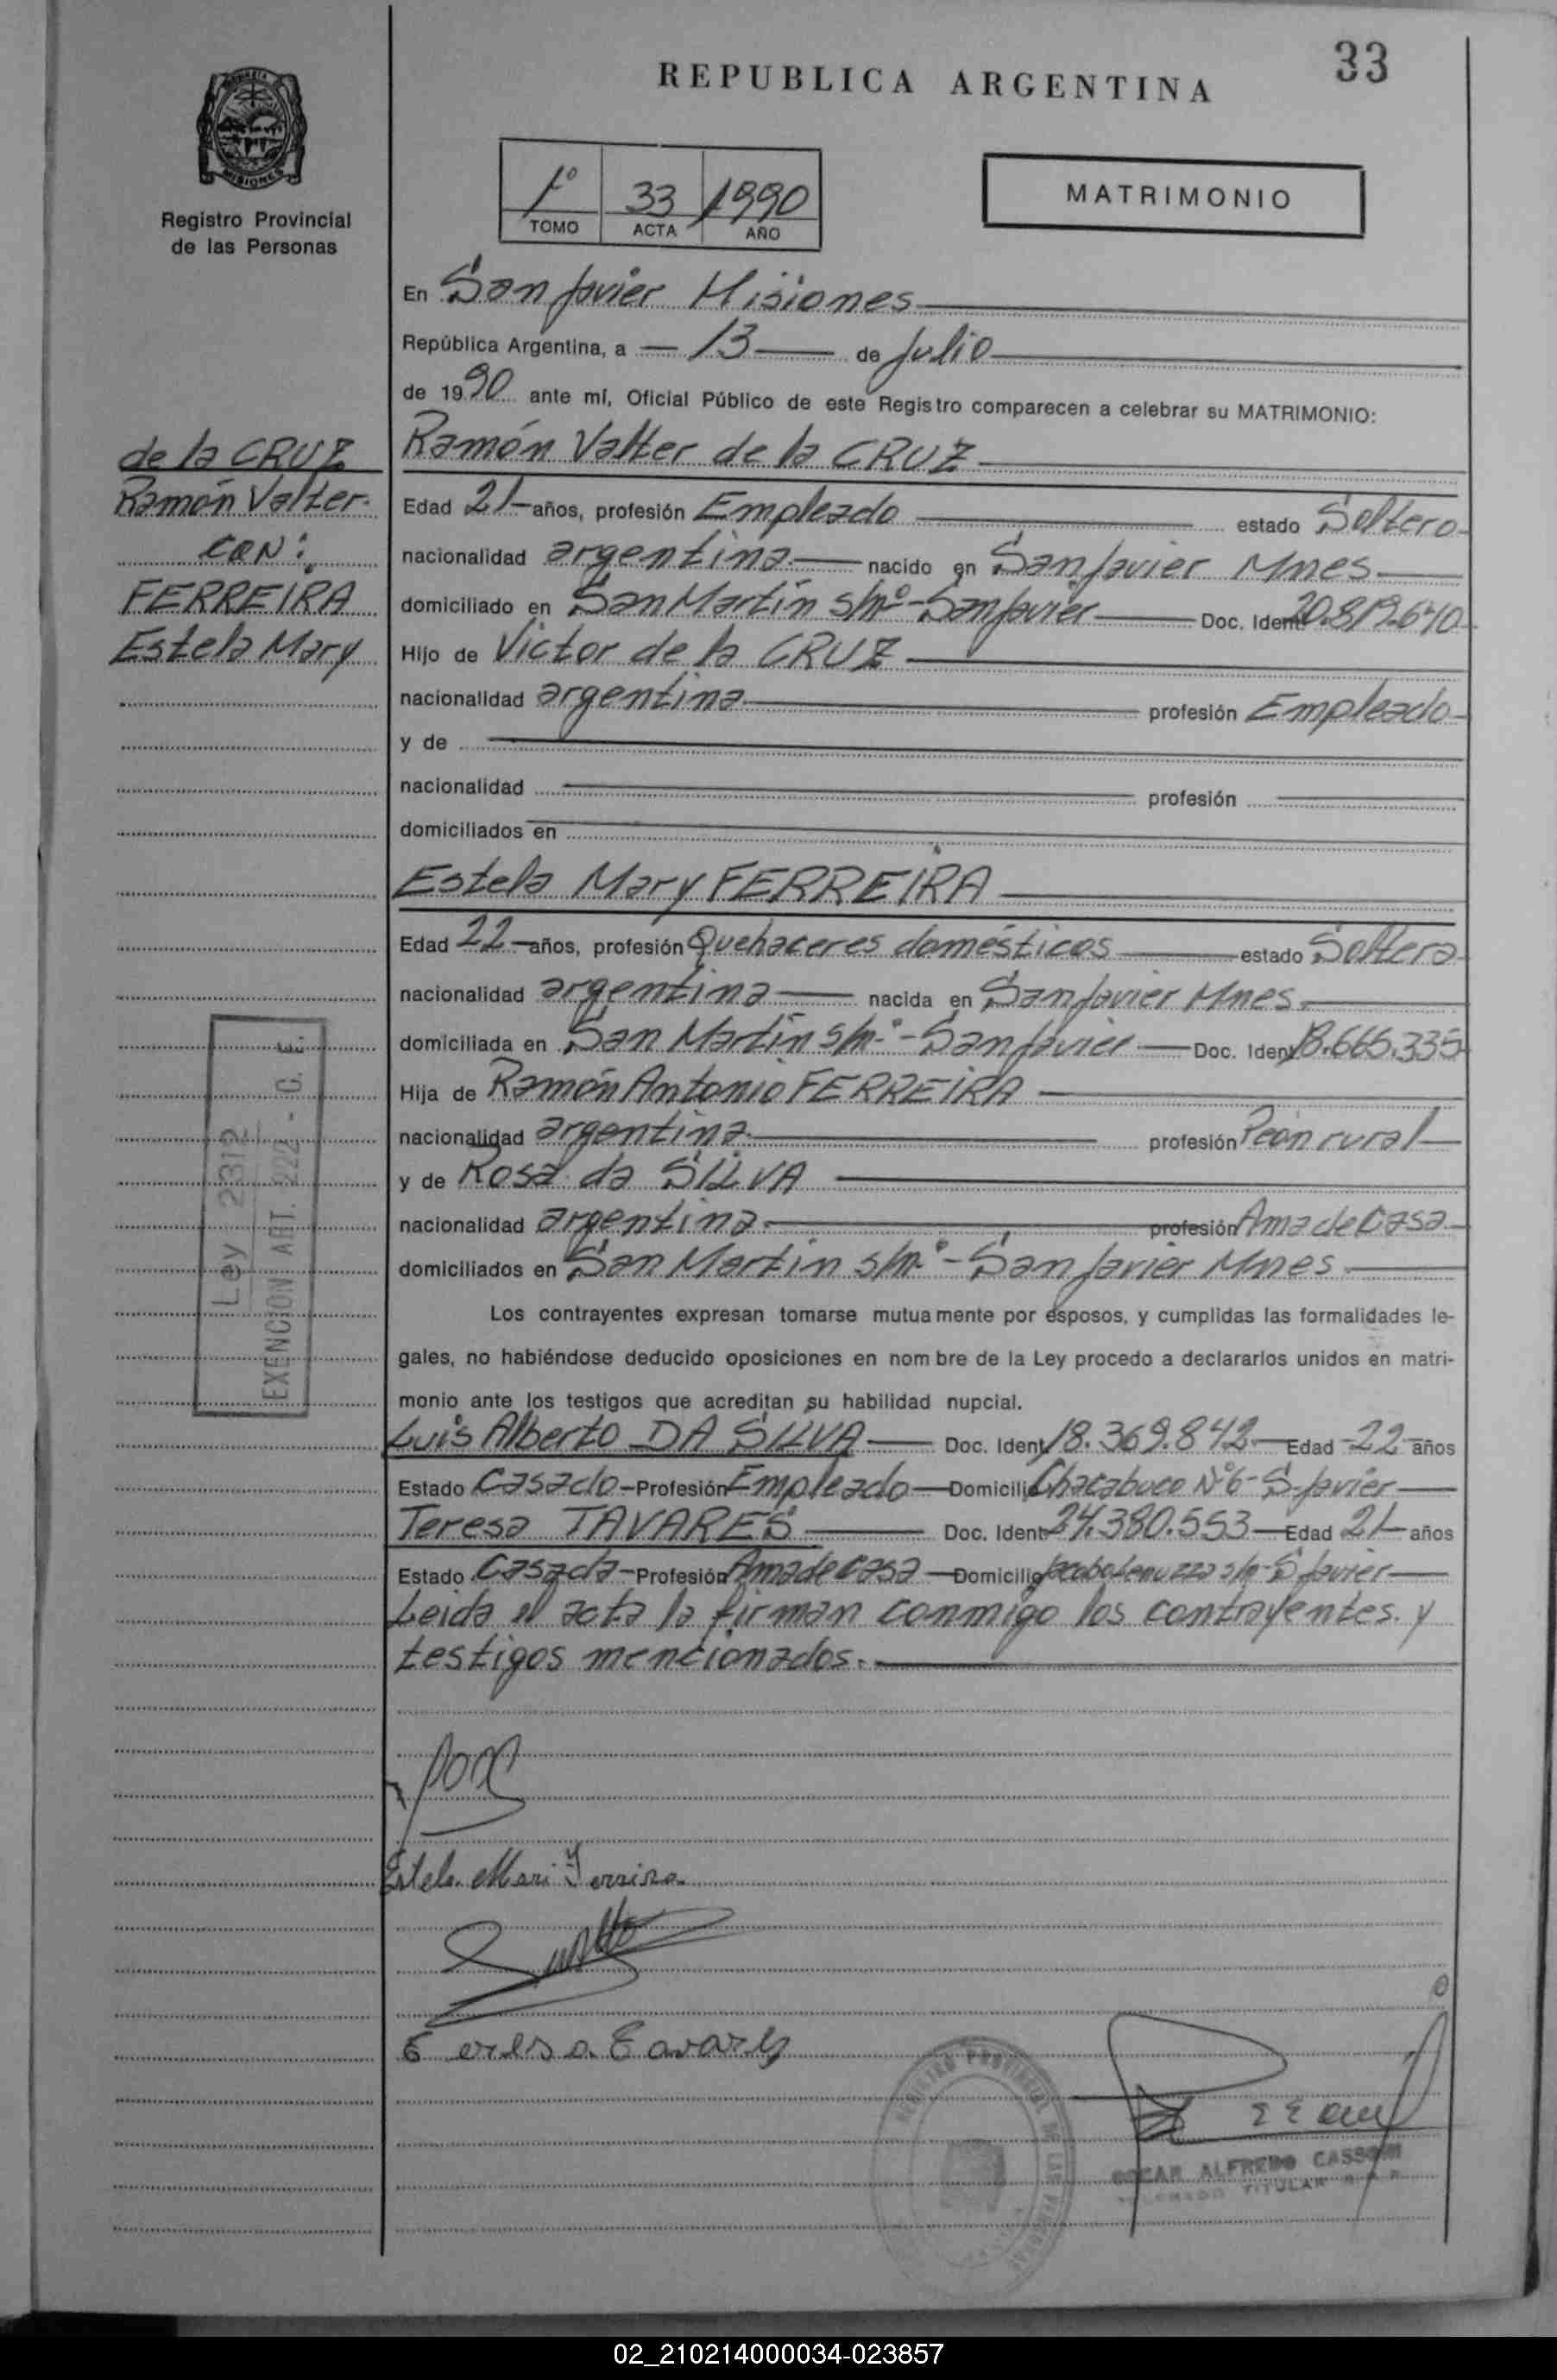 33
REPUBLICA ARGENTINA
MISIONES
Registro Provincial
de las Personas
1º 33 1990
TOMO ACTA AÑO
MATRIMONIO
En San Javier Misiones
República Argentina, a 13 de Julio
de 1990 ante mí, Oficial Público de este Registro comparecen a celebrar su MATRIMONIO:
de la CRUZ
Ramón Valter
CON:
FERREIRA
Estela Mary
Ramón Valter de la CRUZ
Edad 21 años, profesión Empleado estado Soltero
nacionalidad argentina nacido en San Javier Mnes.
domiciliado en San Martín s/nº - San Javier Doc. Ident. 20.819.640
Hijo de Victor de la CRUZ
nacionalidad argentina profesión Empleado
y de
nacionalidad profesión
domiciliados en
Estela Mary FERREIRA
Edad 22 años, profesión Quehaceres domésticos estado Soltera
nacionalidad argentina nacida en San Javier Mnes.
domiciliada en San Martín s/nº - San Javier Doc. Ident. 18.665.335
Hija de Ramón Antonio FERREIRA
nacionalidad argentina profesión Peón rural
y de Rosa da SILVA
nacionalidad argentina profesión Ama de Casa
domiciliados en San Martín s/nº - San Javier Mnes.
Ley 2312
EXENCION ART. 222 - C. F.
Los contrayentes expresan tomarse mutuamente por esposos, y cumplidas las formalidades le-
gales, no habiéndose deducido oposiciones en nombre de la Ley procedo a declararlos unidos en matri-
monio ante los testigos que acreditan su habilidad nupcial.
Luis Alberto DA SILVA Doc. Ident. 18.369.842 Edad 22 años
Estado Casado Profesión Empleado Domicilio Chacabuco Nº 6 - S. Javier
Teresa TAVARES Doc. Ident. 24.380.553 Edad 21 años
Estado Casada Profesión Ama de casa Domicilio s/n - S. Javier
Leida el acta la firman conmigo los contrayentes y
testigos mencionados.
Estela Mari Ferreira
Teresa Tavares
REGISTRO PROVINCIAL DE LAS PERSONAS
OSCAR ALFREDO CASSONI
TITULAR
02_210214000034-023857